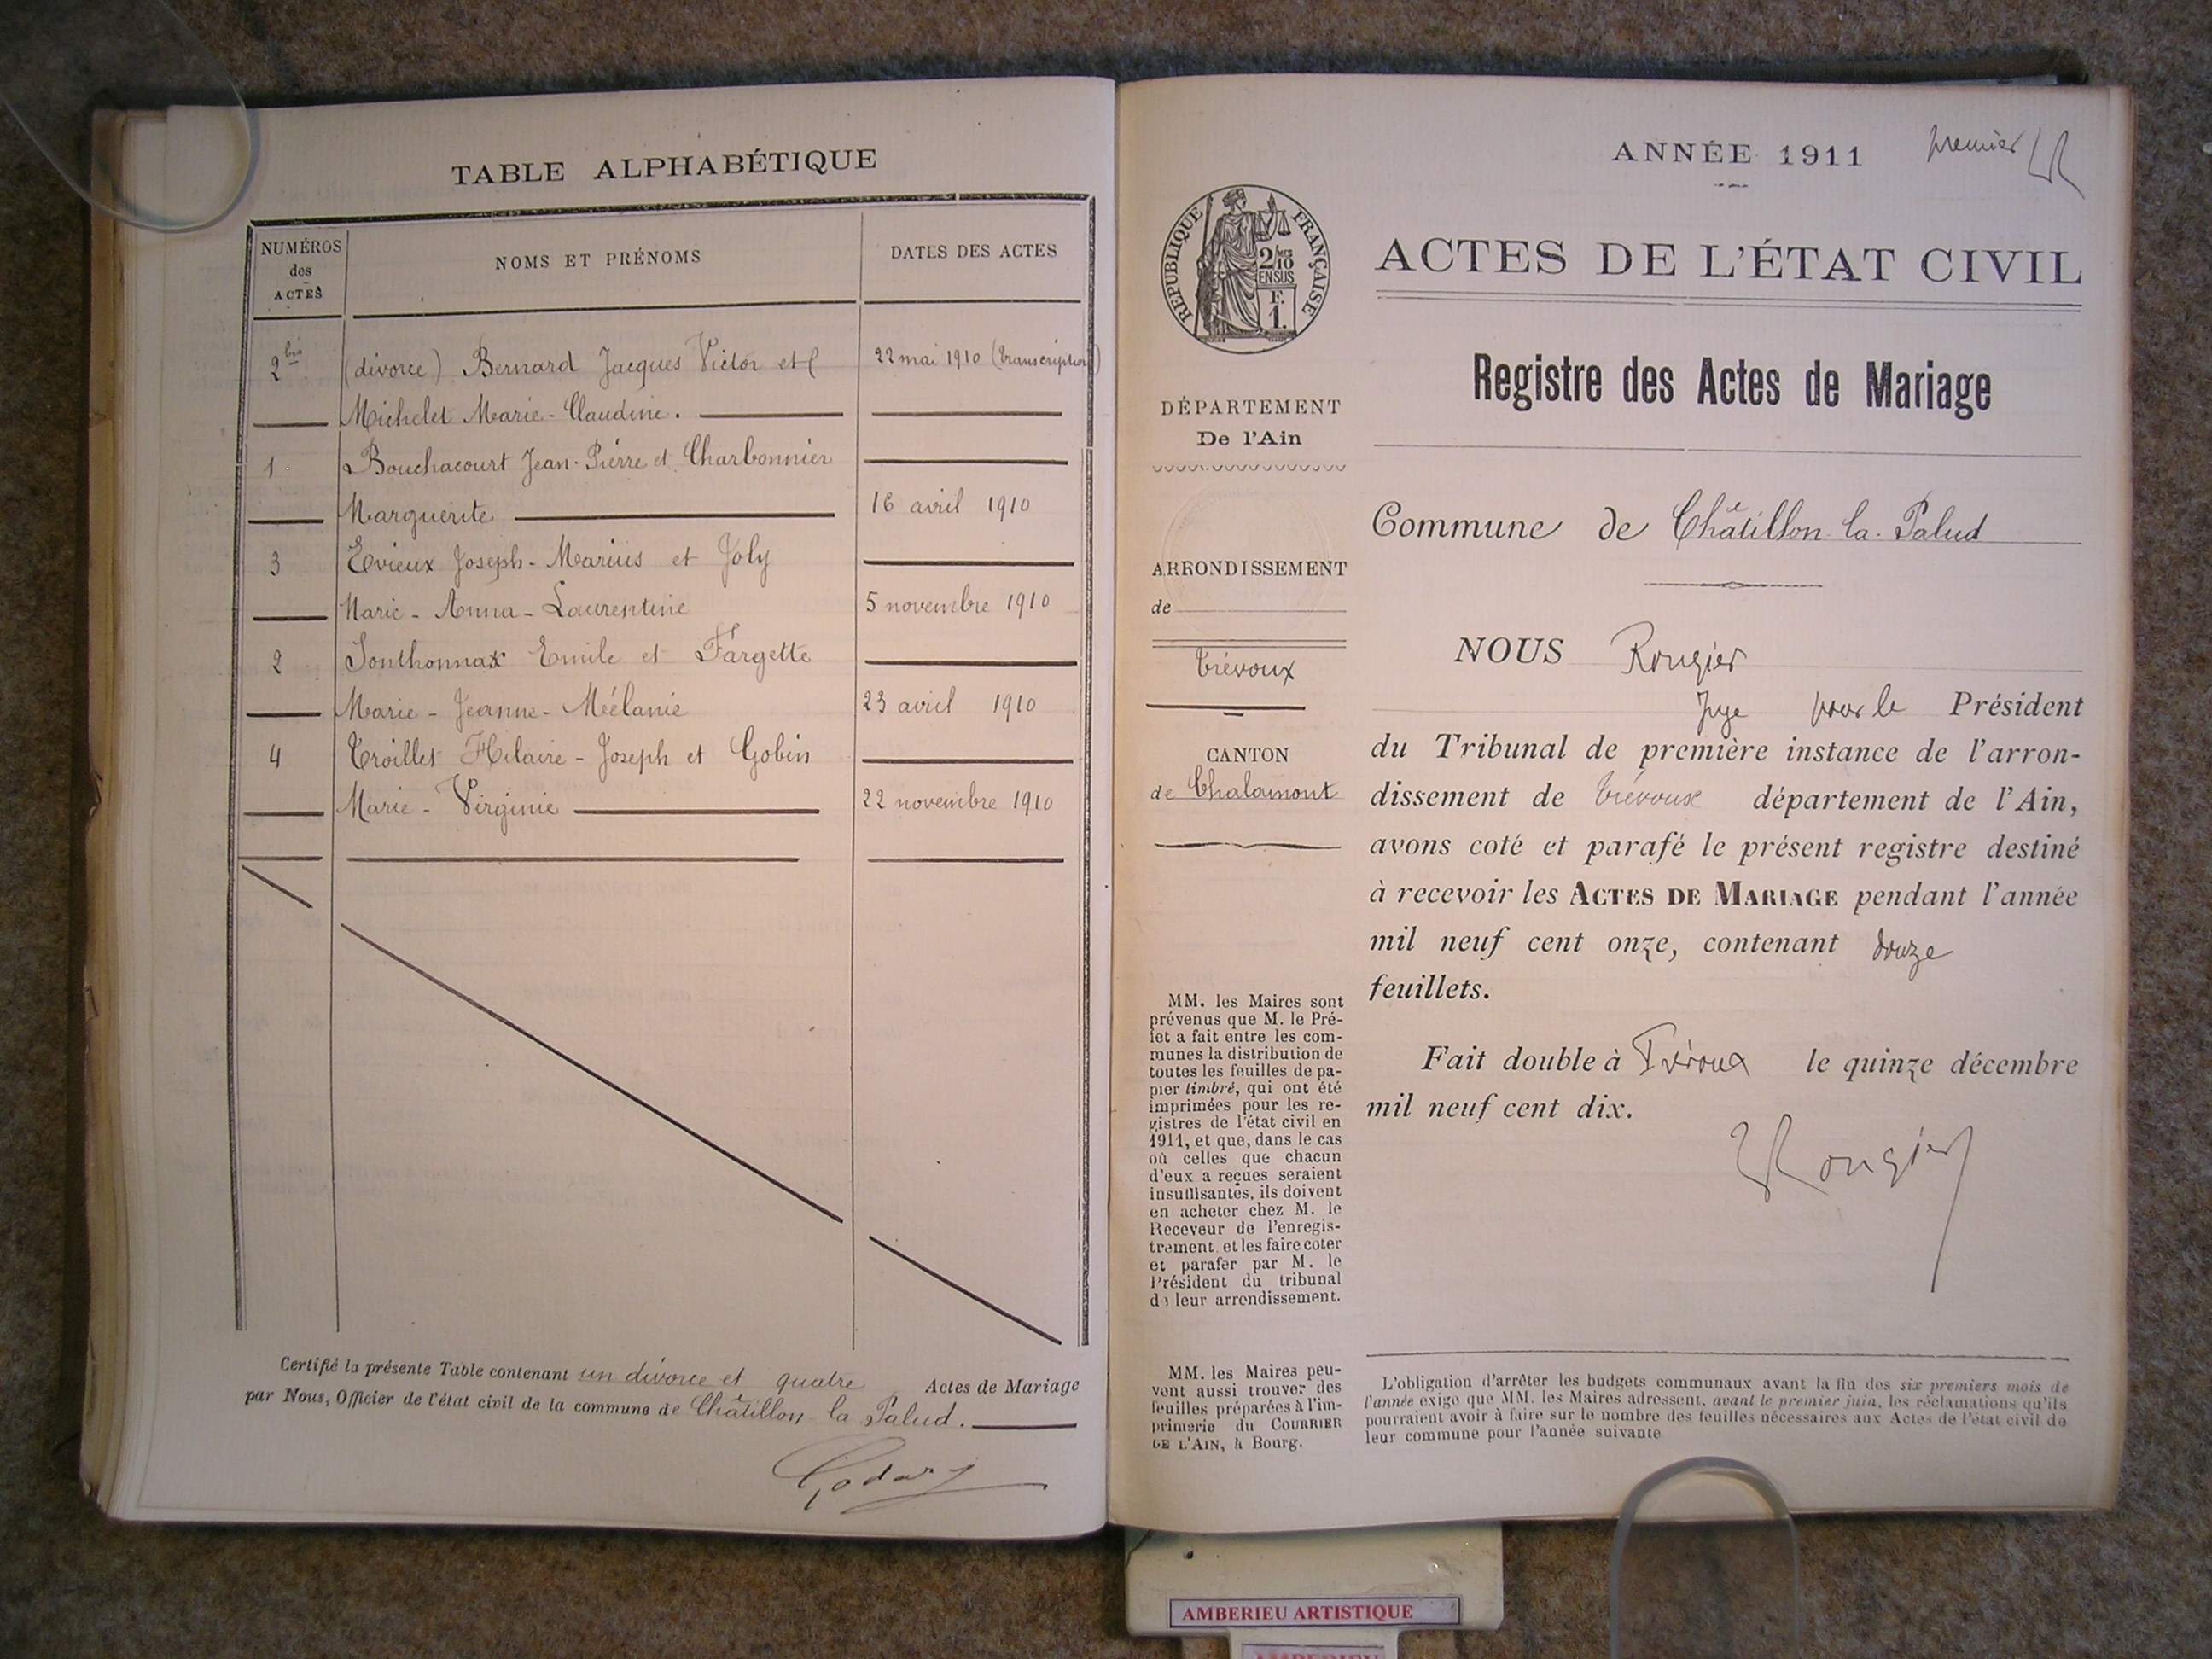 TABLE ALPHABÉTIQUE
NUMÉROS des ACTES
NOMS ET PRÉNOMS
DATES DES ACTES
2 bis (divorce) Bernard Jacques Victor et 22 mai 1910 (transcription)
Michelet Marie-Claudine.
1 Bouchacourt Jean-Pierre et Charbonnier
Marguerite 16 avril 1910
3 Evieux Joseph-Marius et Joly
Marie-Anna-Laurentine 5 novembre 1910
2 Sonthonnax Emile et Fargette
Marie-Jeanne-Mélanie 23 avril 1910
4 Troillet Hilaire-Joseph et Gobin
Marie-Virginie 22 novembre 1910
Certifié la présente Table contenant un divorce et quatre Actes de Mariage
par Nous, Officier de l'état civil de la commune de Châtillon-la-Palud.
ANNÉE 1911
premier
RÉPUBLIQUE FRANÇAISE
2/10
EN SUS
F.
1.
ACTES DE L'ÉTAT CIVIL
Registre des Actes de Mariage
DÉPARTEMENT
De l'Ain
ARRONDISSEMENT
de
Trévoux
CANTON
de Chalamont
MM. les Maires sont
prévenus que M. le Pré-
fet a fait entre les com-
munes la distribution de
toutes les feuilles de pa-
pier timbré, qui ont été
imprimées pour les re-
gistres de l'état civil en
1911, et que, dans le cas
où celles que chacun
d'eux a reçues seraient
insuffisantes, ils doivent
en acheter chez M. le
Receveur de l'enregis-
trement, et les faire coter
et parafer par M. le
Président du tribunal
de leur arrondissement.
MM. les Maires peu-
vent aussi trouver des
feuilles préparées à l'im-
primerie du COURRIER
DE L'AIN, à Bourg.
Commune de Châtillon-la-Palud
NOUS Rougier
Juge pour le Président
du Tribunal de première instance de l'arron-
dissement de Trévoux département de l'Ain,
avons coté et parafé le présent registre destiné
à recevoir les ACTES DE MARIAGE pendant l'année
mil neuf cent onze, contenant douze
feuillets.
Fait double à Trévoux le quinze décembre
mil neuf cent dix.
Rougier
L'obligation d'arrêter les budgets communaux avant la fin des six premiers mois de
l'année exige que MM. les Maires adressent, avant le premier juin, les réclamations qu'ils
pourraient avoir à faire sur le nombre des feuilles nécessaires aux Actes de l'état civil de
leur commune pour l'année suivante
AMBERIEU ARTISTIQUE
AMBERIEU